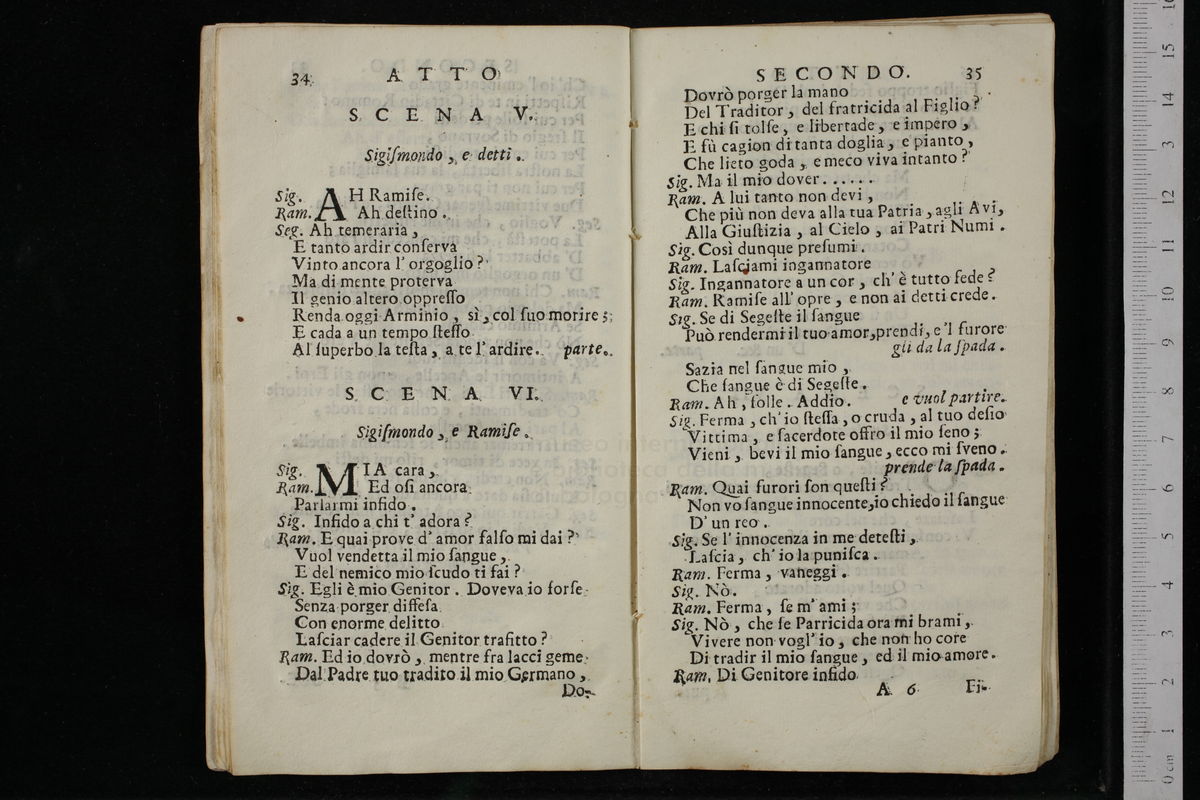 34 ATTO
SCENA V.
Sigiſmondo, e detti.
Sig. AH Ramiſe.
Ram. Ah deſtino.
Seg. Ah temeraria,
E tanto ardir conſerva
Vinto ancora l' orgoglio?
Ma di mente proterva
Il genio altero oppreſſo
Renda oggi Arminio, sì, col ſuo morire;
E cada a un tempo ſteſſo
Al ſuperbo la teſta, a te l' ardire. parte.
SCENA VI.
Sigiſmondo, e Ramiſe.
Sig. MIA cara,
Ram. Ed oſi ancora
Parlarmi infido.
Sig. Infido a chi t' adora?
Ram. E quai prove d' amor falſo mi dai?
Vuol vendetta il mio ſangue,
E del nemico mio ſcudo ti fai?
Sig. Egli è mio Genitor. Doveva io forſe
Senza porger diffeſa
Con enorme delitto
Laſciar cadere il Genitor trafitto?
Ram. Ed io dovrò, mentre fra lacci geme
Dal Padre tuo tradito il mio Germano,
Do-
SECONDO. 35
Dovrò porger la mano
Del Traditor, del fratricida al Figlio?
E chi ſi tolſe, e libertade, e impero,
E fù cagion di tanta doglia, e pianto,
Che lieto goda, e meco viva intanto?
Sig. Ma il mio dover......
Ram. A lui tanto non devi,
Che più non deva alla tua Patria, agli Avi,
Alla Giuſtizia, al Cielo, ai Patri Numi.
Sig. Così dunque preſumi.
Ram. Laſciami ingannatore
Sig. Ingannatore a un cor, ch' è tutto fede?
Ram. Ramiſe all' opre, e non ai detti crede.
Sig. Se di Segeſte il ſangue
Può rendermi il tuo amor, prendi, e'l furore
gli da la ſpada.
Sazia nel ſangue mio,
Che ſangue è di Segeſte.
Ram. Ah, folle. Addio. e vuol partire.
Sig. Ferma, ch' io ſteſſa, o cruda, al tuo deſio
Vittima, e ſacerdote offro il mio ſeno;
Vieni, bevi il mio ſangue, ecco mi ſveno.
prende la ſpada.
Ram. Quai furori ſon queſti?
Non vo ſangue innocente, io chiedo il ſangue
D' un reo.
Sig. Se l' innocenza in me deteſti,
Laſcia, ch' io la puniſca.
Ram. Ferma, vaneggi.
Sig. Nò.
Ram. Ferma, ſe m' ami;
Sig. Nò, che ſe Parricida ora mi brami,
Vivere non vogl' io, che non ho core
Di tradir il mio ſangue, ed il mio amore.
Ram. Di Genitore infido
A 6 Fi-